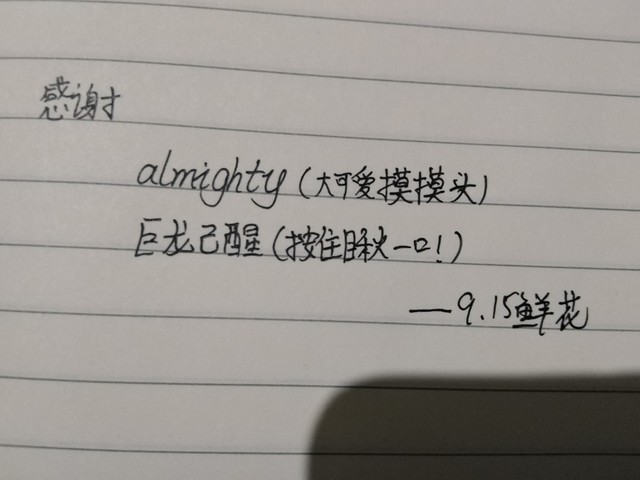 感谢
almighty(大可爱摸摸头)
巨龙已醒(按住瞅一口!)
—9.15鲜花